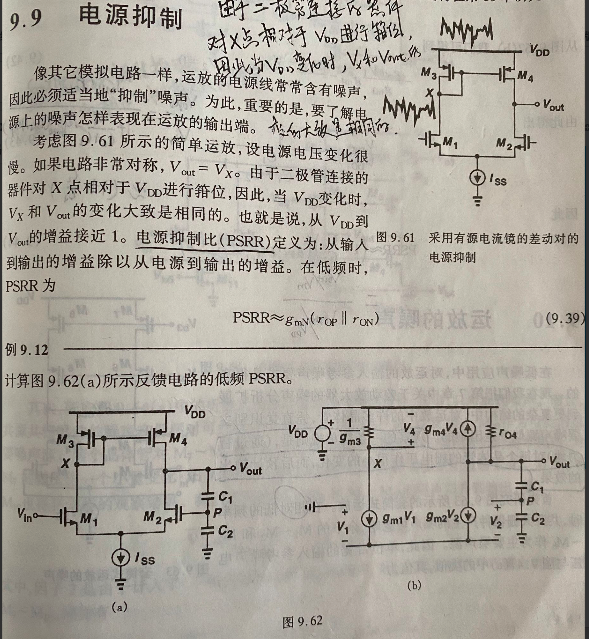 9.9 电源抑制
由于二极管连接的器件
对X点相对于VDD进行箝位,
因此当VDD变化时,VX和Vout的
像其它模拟电路一样,运放的电源线常常含有噪声,
因此必须适当地“抑制”噪声。为此,重要的是,要了解电
源上的噪声怎样表现在运放的输出端。
考虑图9.61所示的简单运放,设电源电压变化很
慢。如果电路非常对称,Vout=VX。由于二极管连接的
器件对X点相对于VDD进行箝位,因此,当VDD变化时,
VX和Vout的变化大致是相同的。也就是说,从VDD到
Vout的增益接近1。电源抑制比(PSRR)定义为:从输入
到输出的增益除以从电源到输出的增益。在低频时,
PSRR为
VDD
M3
M4
X
Vout
M1
M2
ISS
图9.61 采用有源电流镜的差动对的
电源抑制
PSRR≈gmN(rOP∥rON) (9.39)
例9.12
计算图9.62(a)所示反馈电路的低频PSRR。
VDD
M3
M4
X
Vout
C1
Vin
M1
M2
P
C2
ISS
(a)
VDD
+
−
1
gm3
V4
−
+
gm4V4
rO4
X
Vout
C1
P
+
V1
−
gm1V1
gm2V2
+
V2
−
C2
(b)
图9.62